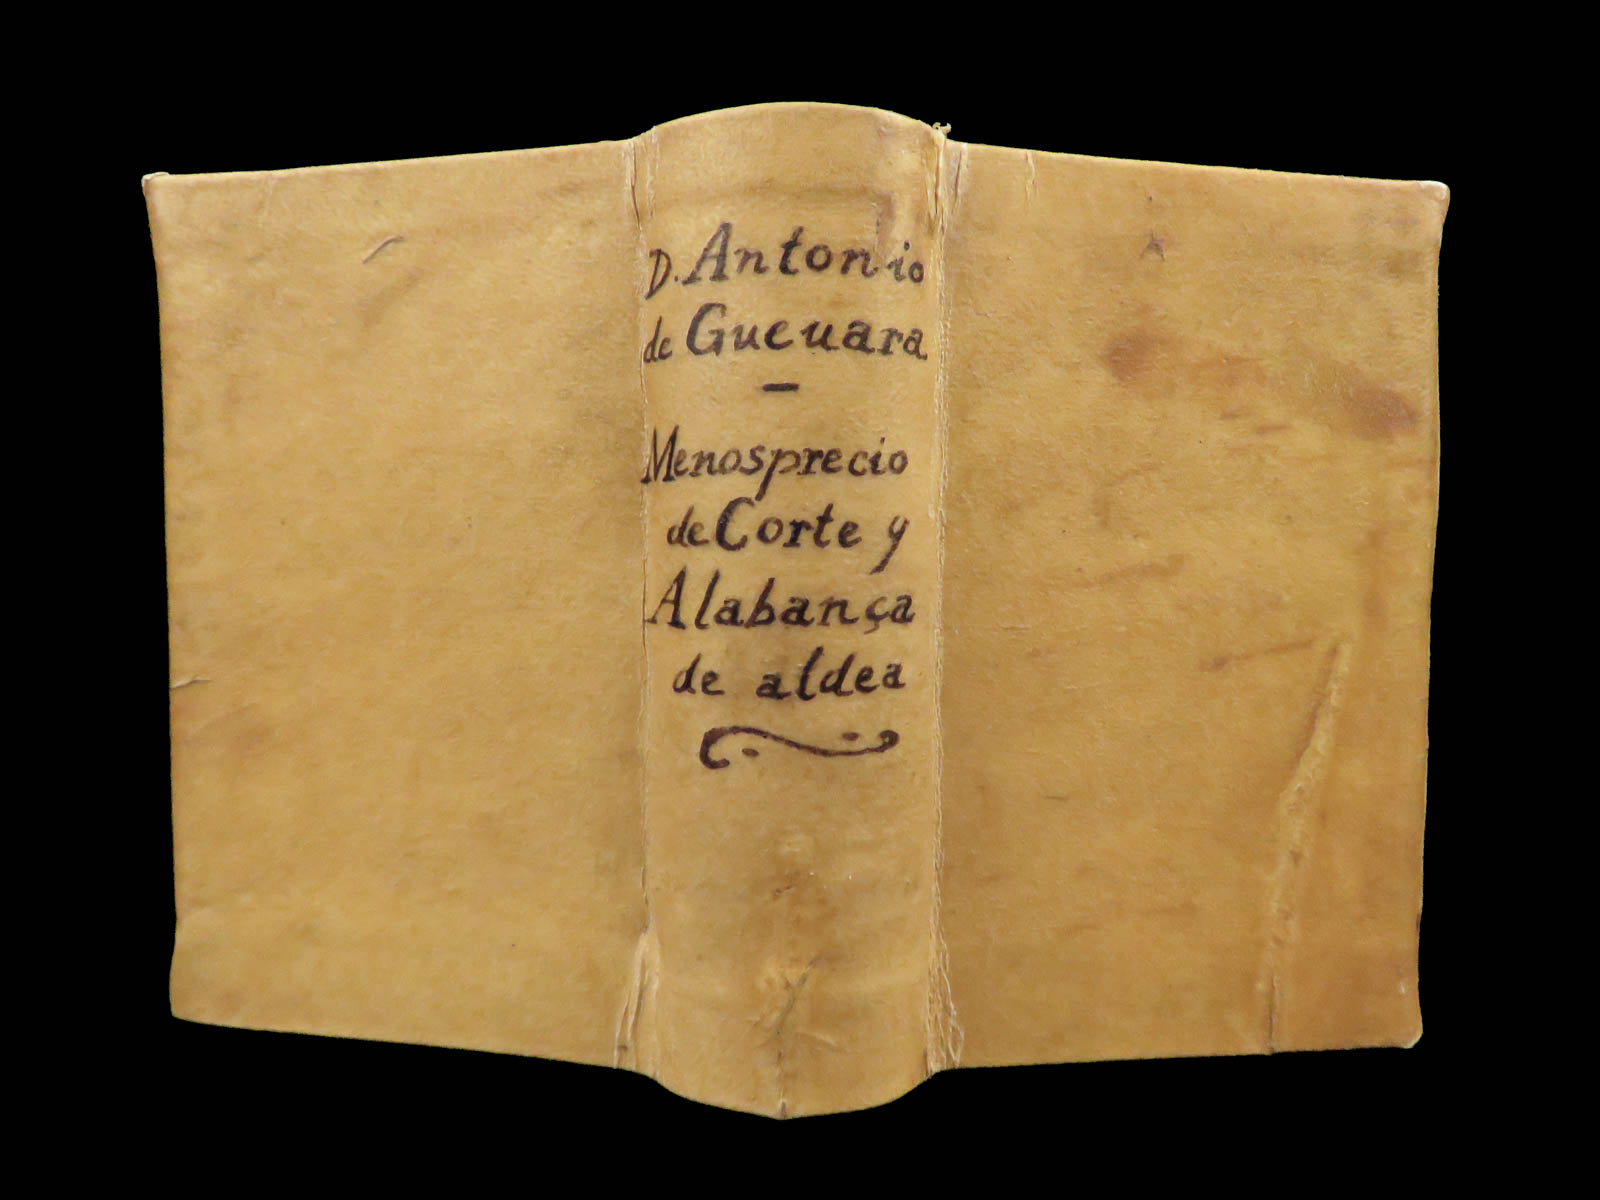 D. Antonio
de Gueuara
–
Menosprecio
de Corte y
Alabança
de aldea